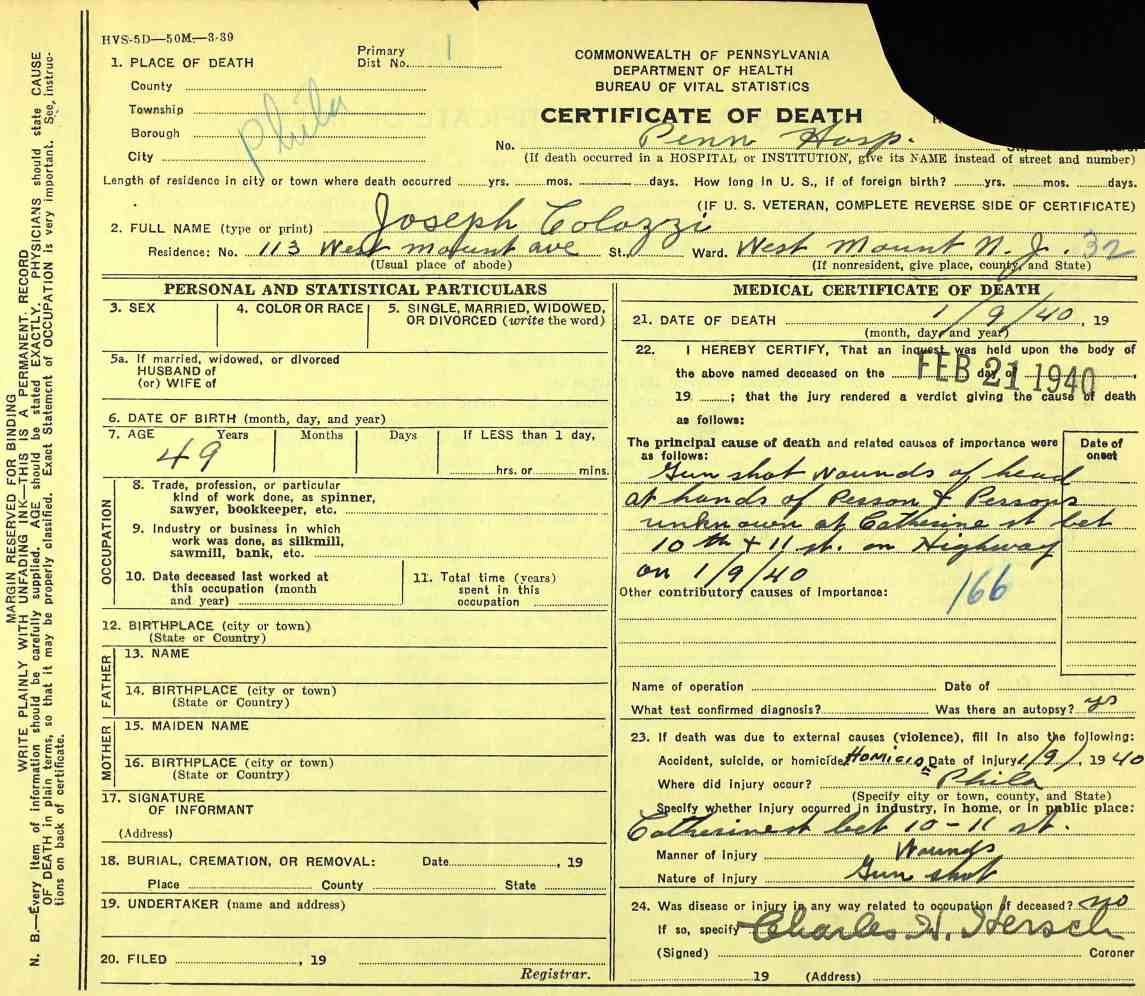 HVS-5D—50M—3-39
Primary
Dist No. 1
COMMONWEALTH OF PENNSYLVANIA
DEPARTMENT OF HEALTH
BUREAU OF VITAL STATISTICS
CERTIFICATE OF DEATH
1. PLACE OF DEATH
County
Township
Borough
City
Phila
No. Penn Hosp.
(If death occurred in a HOSPITAL or INSTITUTION, give its NAME instead of street and number)
Length of residence in city or town where death occurred yrs. mos. days. How long in U. S., if of foreign birth? yrs. mos. days.
(IF U. S. VETERAN, COMPLETE REVERSE SIDE OF CERTIFICATE)
2. FULL NAME (type or print) Joseph Colozzi
Residence: No. 113 West mount ave St., Ward. West Mount N. J. 32
(Usual place of abode) (If nonresident, give place, county, and State)
PERSONAL AND STATISTICAL PARTICULARS
3. SEX
4. COLOR OR RACE
5. SINGLE, MARRIED, WIDOWED,
OR DIVORCED (write the word)
5a. If married, widowed, or divorced
HUSBAND of
(or) WIFE of
6. DATE OF BIRTH (month, day, and year)
7. AGE Years Months Days If LESS than 1 day,
49
hrs. or mins.
OCCUPATION
8. Trade, profession, or particular
kind of work done, as spinner,
sawyer, bookkeeper, etc.
9. Industry or business in which
work was done, as silkmill,
sawmill, bank, etc.
10. Date deceased last worked at
this occupation (month
and year)
11. Total time (years)
spent in this
occupation
12. BIRTHPLACE (city or town)
(State or Country)
FATHER
13. NAME
14. BIRTHPLACE (city or town)
(State or Country)
MOTHER
15. MAIDEN NAME
16. BIRTHPLACE (city or town)
(State or Country)
17. SIGNATURE
OF INFORMANT
(Address)
18. BURIAL, CREMATION, OR REMOVAL: Date , 19
Place County State
19. UNDERTAKER (name and address)
20. FILED , 19
Registrar.
MEDICAL CERTIFICATE OF DEATH
21. DATE OF DEATH 1/9/40, 19
(month, day, and year)
22. I HEREBY CERTIFY, That an inquest was held upon the body of
the above named deceased on the day of
FEB 21 1940
19 ; that the jury rendered a verdict giving the cause of death
as follows:
The principal cause of death and related causes of importance were
as follows:
Date of
onset
Gun shot wounds of head
at hands of Person & Persons
unknown at Catherine st bet
10th + 11 st. on Highway
on 1/9/40
Other contributory causes of importance:
166
Name of operation Date of
What test confirmed diagnosis? Was there an autopsy? yes
23. If death was due to external causes (violence), fill in also the following:
Accident, suicide, or homicide Homicide Date of injury 1/9/, 1940
Where did injury occur? Phila
(Specify city or town, county, and State)
Specify whether injury occurred in industry, in home, or in public place:
Catherine st bet 10-11 st.
Manner of injury Wounds
Nature of injury Gun shot
24. Was disease or injury in any way related to occupation of deceased? no
If so, specify
Charles H. Hersch
(Signed) Coroner
19 (Address)
MARGIN RESERVED FOR BINDING
WRITE PLAINLY WITH UNFADING INK—THIS IS A PERMANENT RECORD
N. B.—Every item of information should be carefully supplied. AGE should be stated EXACTLY. PHYSICIANS should state CAUSE
OF DEATH in plain terms, so that it may be properly classified. Exact Statement of OCCUPATION is very important. See instruc-
tions on back of certificate.